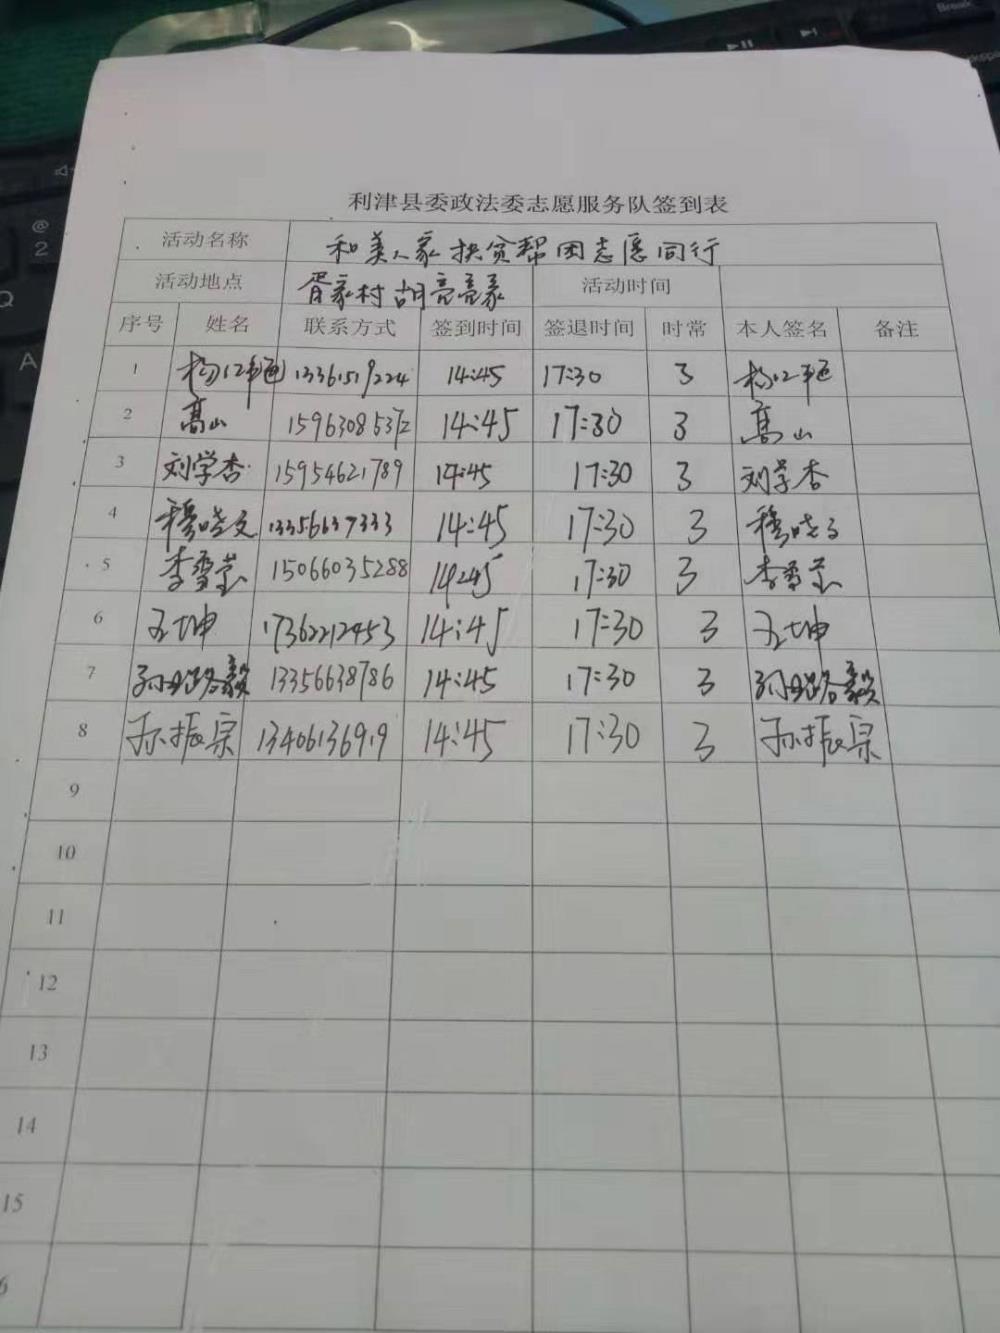 利津县委政法委志愿服务队签到表
活动名称 和美人家扶贫帮困志愿同行
活动地点 胥家村胡亮亮家 活动时间
序号 姓名 联系方式 签到时间 签退时间 时常 本人签名 备注
1 13361519224 14:45 17:30 3
2 高山 15963085372 14:45 17:30 3 高山
3 刘学杏 15954621789 14:45 17:30 3 刘学杏
4 穆晓文 13356637333 14:45 17:30 3 穆晓文
5 李雪莹 15066035288 14:45 17:30 3 李雪莹
6 王坤 17362212453 14:45 17:30 3 王坤
7 13356638786 14:45 17:30 3
8 孙振宗 13406136919 14:45 17:30 3 孙振宗
9
10
11
12
13
14
15
6